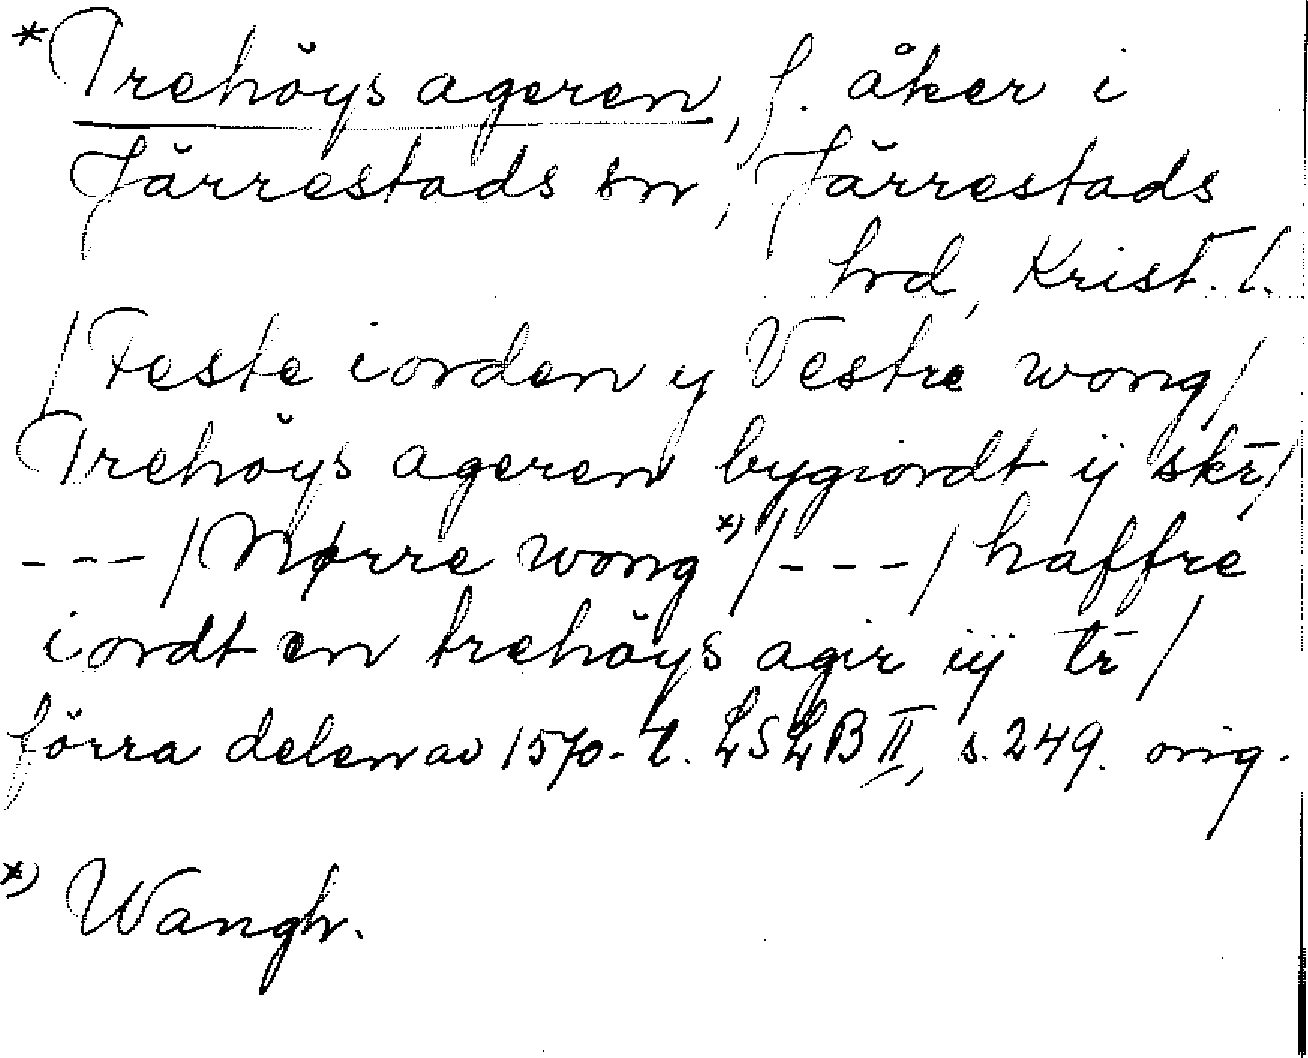 *Trehöys ageren, f. åker i
Järrestads sn, Järrestads
hrd, Krist. l.
/Feste iorden y Vestre wong/
Trehöys ageren bygiordt ij skr̄/
---/Nørre wong*)/---/haffre
iordt en trehöys agir iij tr̄/
förra delen av 1570-t. LSLB II, s. 249. orig.
*) Wangh.